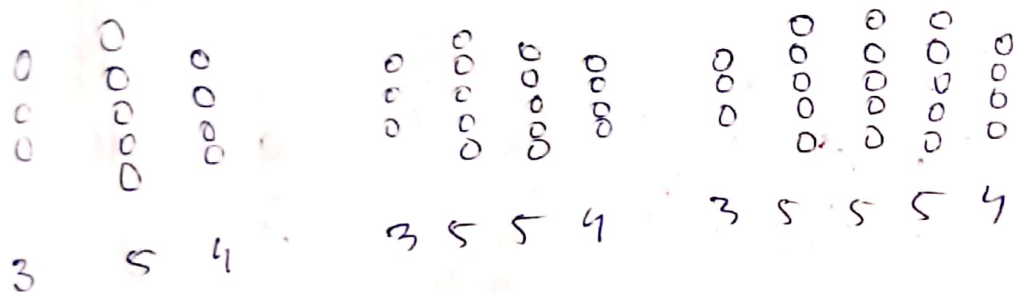 3 5 4 3 5 5 4 3 5 5 5 4